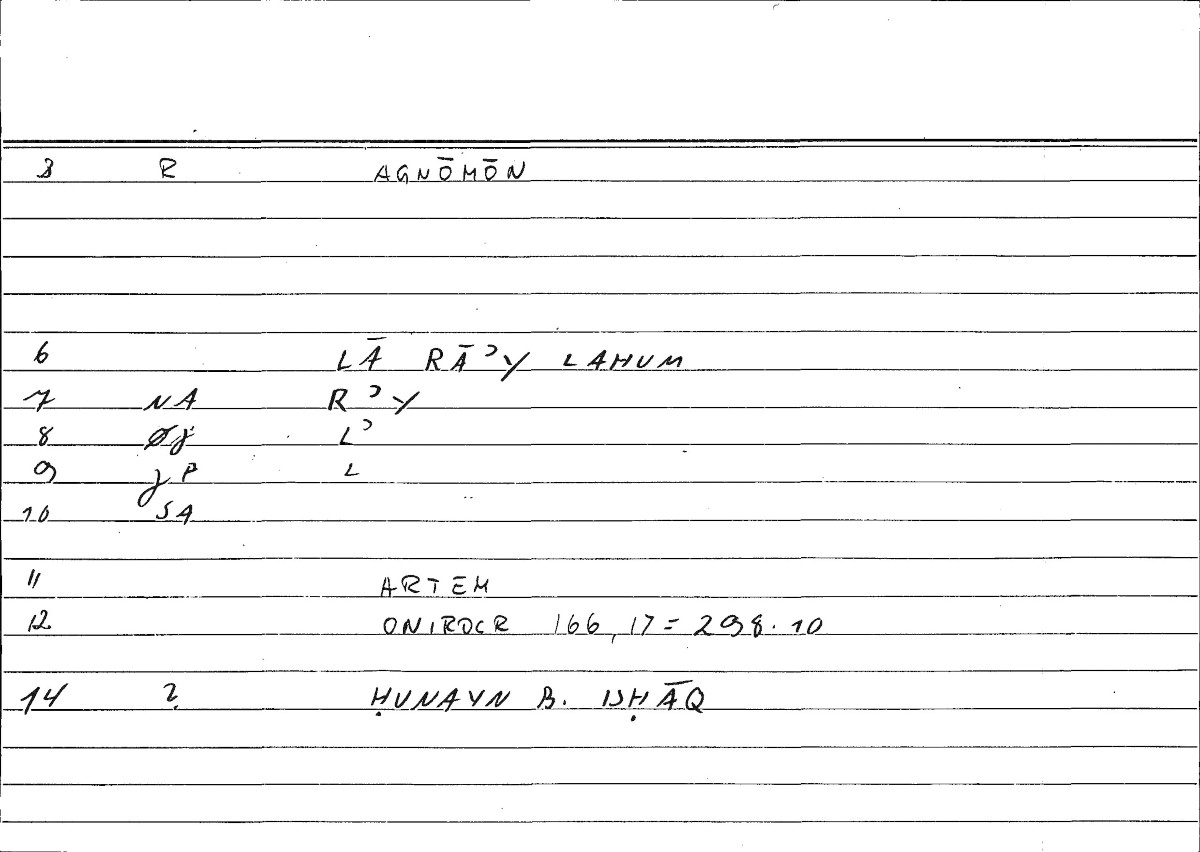 3 R AGNŌMŌN
6 LĀ RĀʾY LAHUM
7 NA RʾY
8 Øj Lʾ
9 jP L
10 SA
11 ARTEM
12 ONIROCR 166,17 = 298.10
14 ? ḤUNAYN B. ISḤĀQ